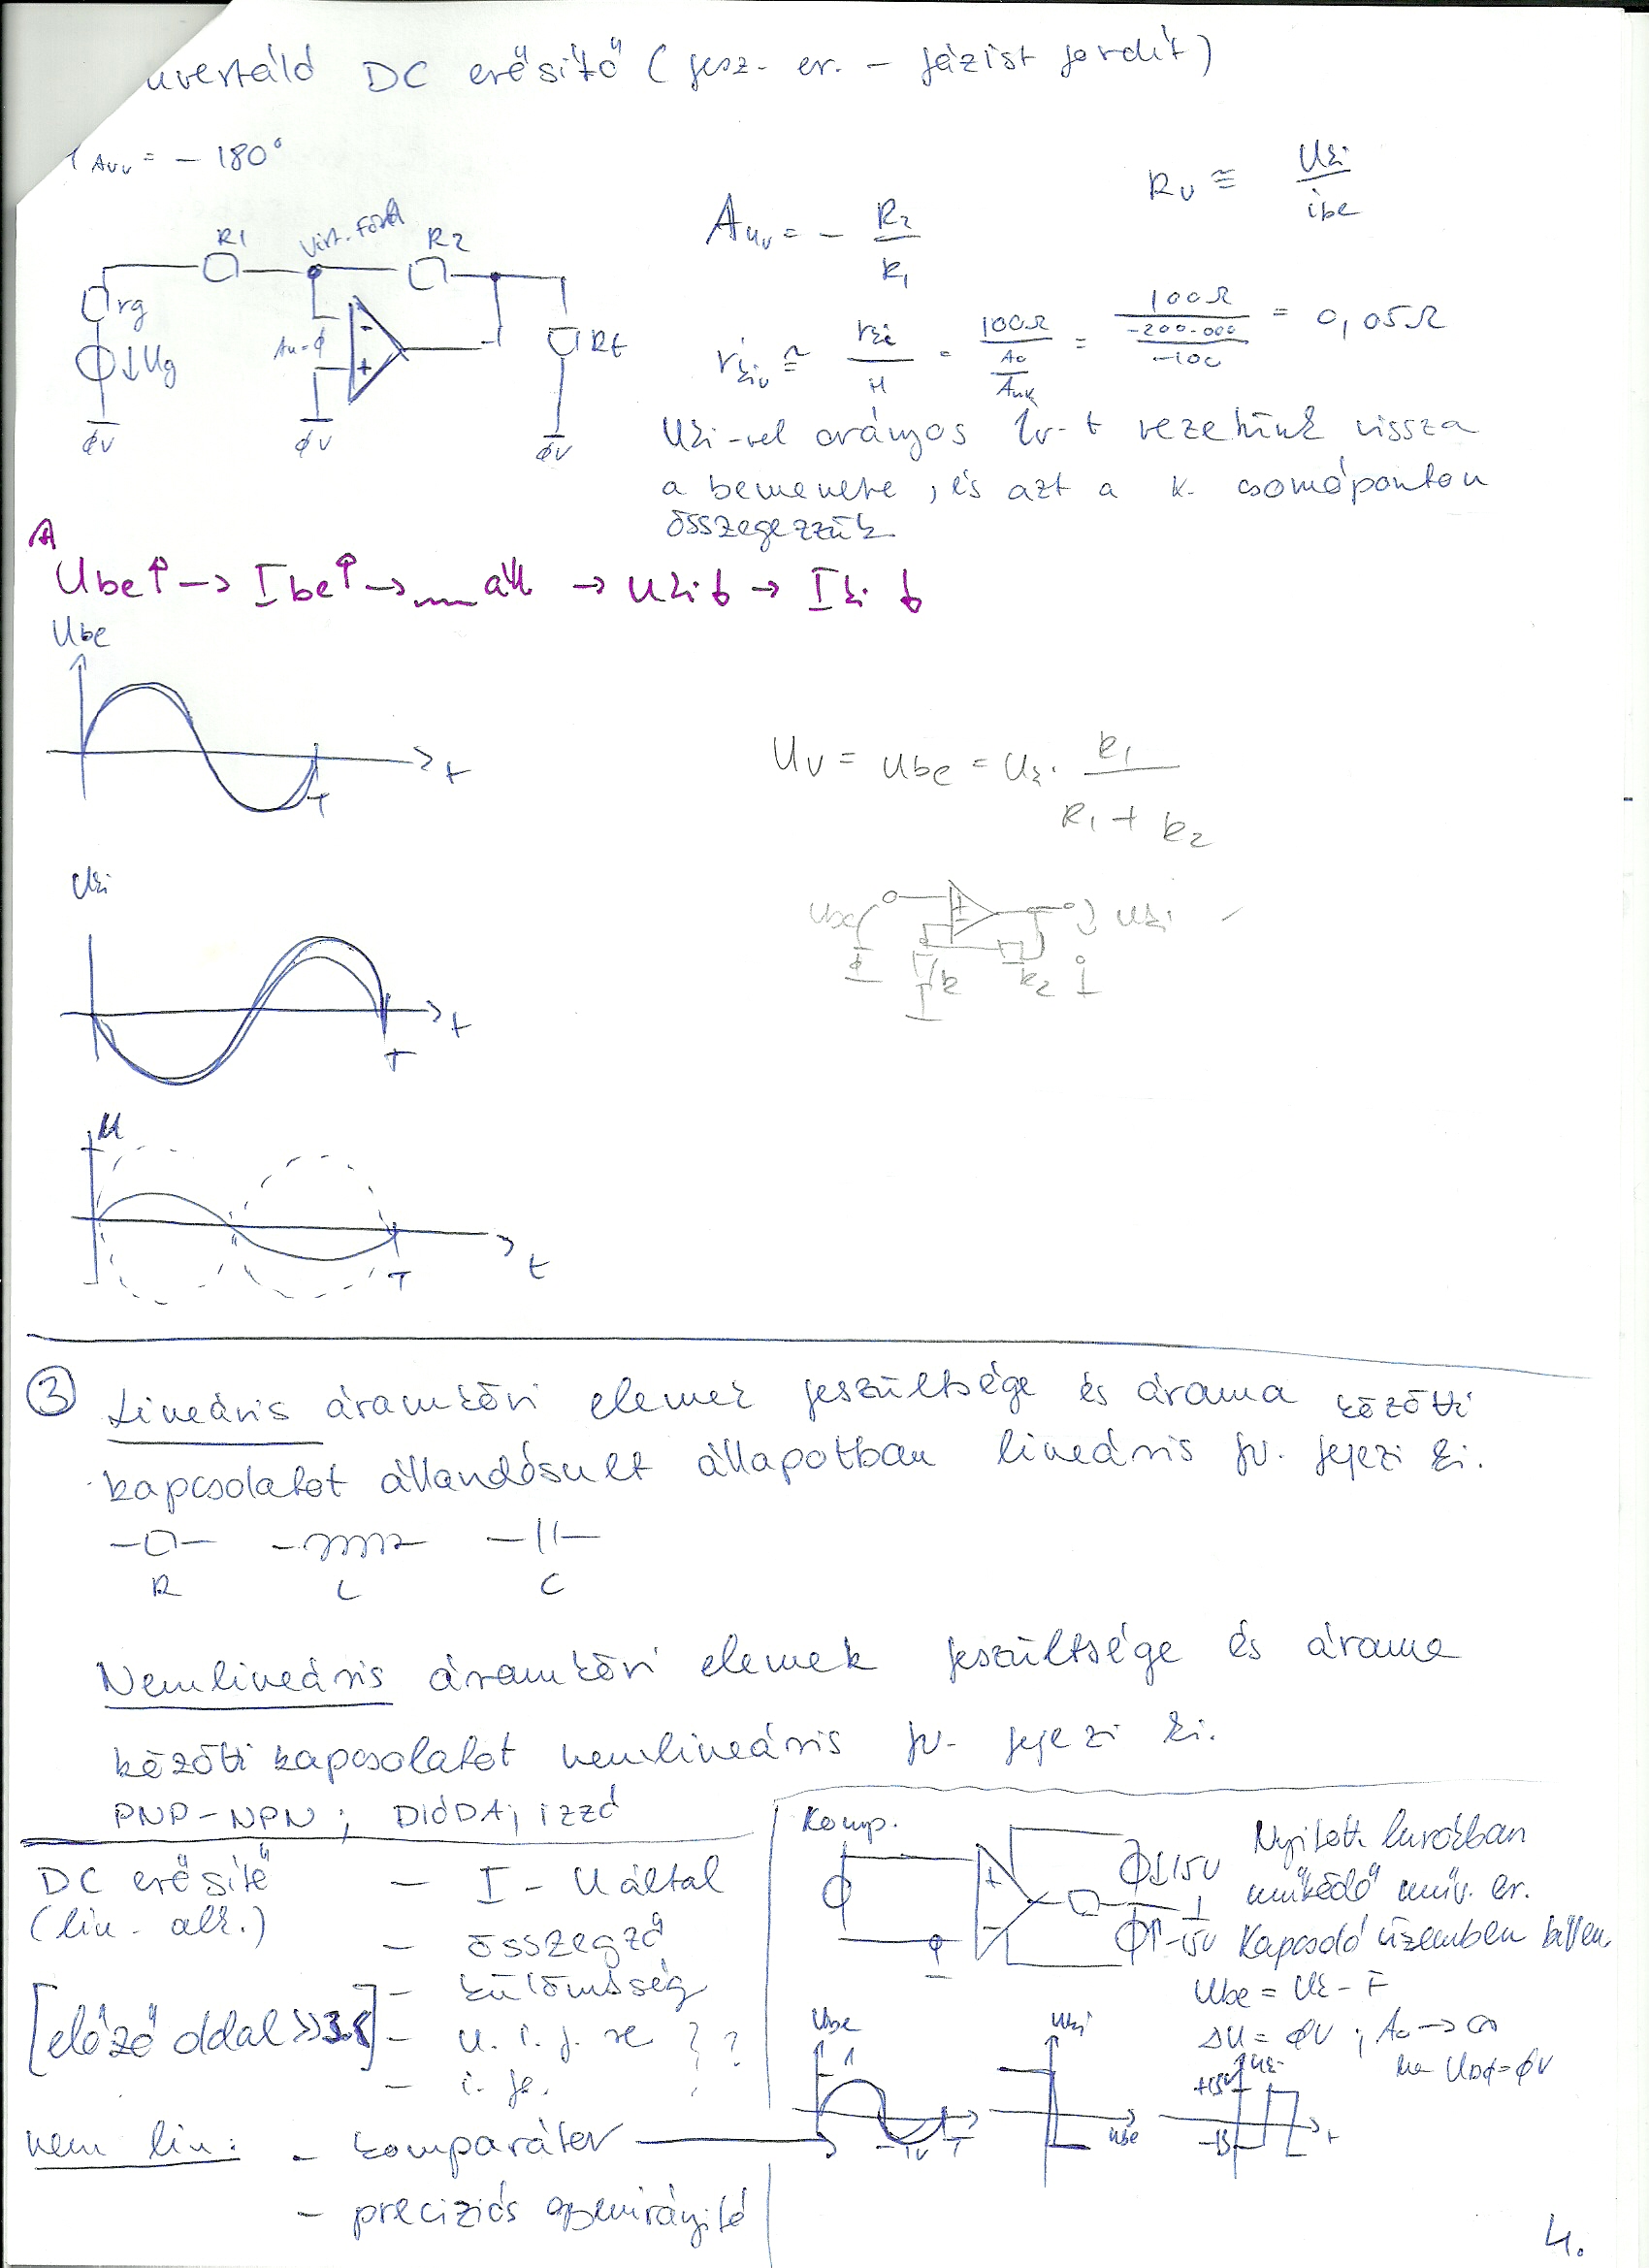 nvertáló DC erősítő (fesz. er. - fázist fordít)
Auv = - 180°
Auv = - R2 / R1
Rv ≅ Uki / ibe
R1
virt. föld
R2
rg
Ug
Rt
Au=ϕ
-
+
ϕV
ϕV
ϕV
rkiv ≅ rki / H = 100Ω / (Ao / Auk) = 100Ω / (-200.000 / -100) = 0,05Ω
Uki-vel arányos Iv-t vezetünk vissza
a bemenetre, és azt a k. csomóponton
összegezzük
A
Ube↑ → Ibe↑ → áll → Uki↓ → Iki↓
Ube
t
T
Uv = Ube = Uk. R1 / R1 + R2
Uki
t
T
Ube
+
-
Uki
R1
R2
M
t
T
3 Lineáris áramköri elemek feszültsége és árama közötti
kapcsolatot állandósult állapotban lineáris fv. fejezi ki.
R L C
Nemlineáris áramköri elemek feszültsége és árama
közötti kapcsolatot nemlineáris fv. fejezi ki.
PNP-NPN; DióDA; izzó
DC erősítő
(lin. alk.)
- I - U által
- összegző
- külömbség
[előző oldal »3.]
- u. i. j. re ??
- i. je.
nem lin:
- komparátor
- preciziós egyenirányító
Komp.
+
-
ϕ↓15V
ϕ↑-15V
Nyitott hurokban
működő műv. er.
Kapcsoló üzemben billen.
Ube = Uk - F
ΔU = ϕV ; Ao → ∞
Ube
1
-1V
T
Uki
Ube
+15V
Uk.
-15
t
4.